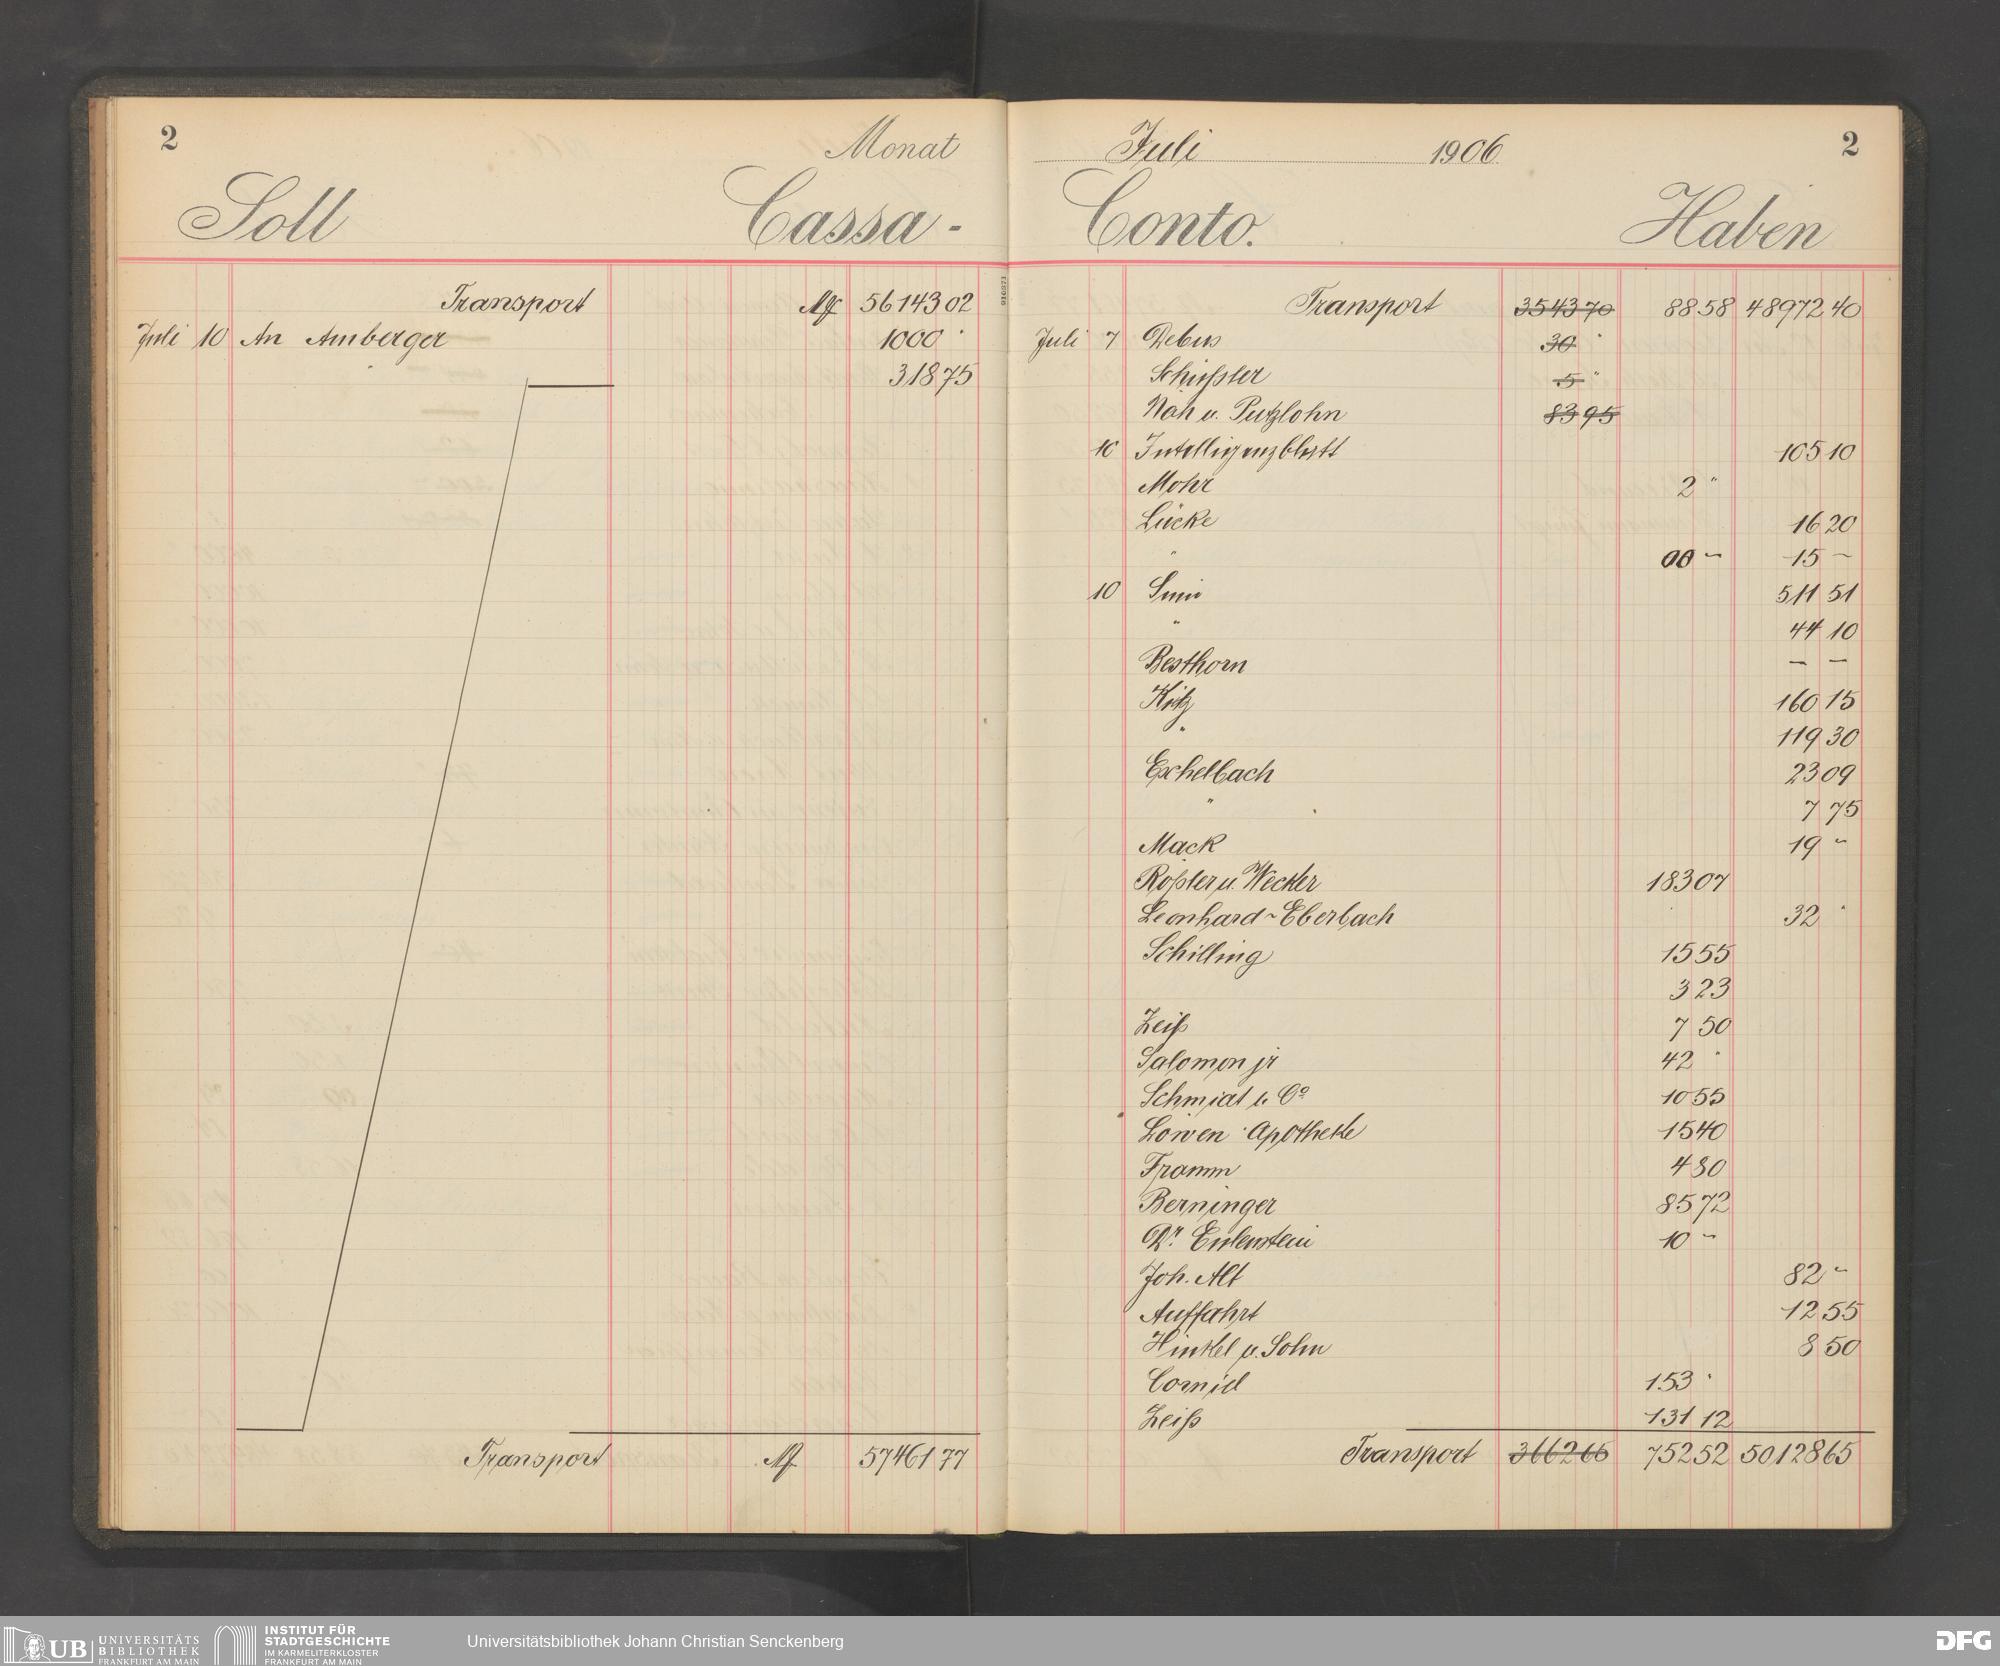 2
Monat
Soll Cassa-
Transport M 56143 02
Juli 10 An Amberger 1000 "
318 75
Transport M 57461 77
Juli 1906 2
Conto. Haben
Transport 3543 70 88 58 48972 40
Juli 7 Debus 30 "
Schüßler 5 "
Näh u. Putzlohn 83 95
10 Intelligenzblatt 105 10
Mohr 2 "
Lücke 16 20
" 00 – 15 –
10 511 51
" 44 10
Besthorn – –
Kitz 160 15
" 119 30
Eschelbach 23 09
" 7 75
Mack 19 –
Rößler u. Wecker 183 07
Leonhard-Eberbach 32 "
Schilling 15 55
3 23
Zeiß 7 50
Salomon jr 42 "
Schmidt & Co 10 55
Löwen Apotheke 15 40
Framm 4 80
Berninger 85 72
Dr. Eulenstein 10 –
Joh. Alt 82 –
Auffahrt 12 55
Hinkel u. Sohn 8 50
Cornid 153 "
Zeiß 131 12
Transport 3662 65 752 52 50128 65
UB UNIVERSITÄTS
BIBLIOTHEK
FRANKFURT AM MAIN
INSTITUT FÜR
STADTGESCHICHTE
IM KARMELITERKLOSTER
FRANKFURT AM MAIN
Universitätsbibliothek Johann Christian Senckenberg
DFG